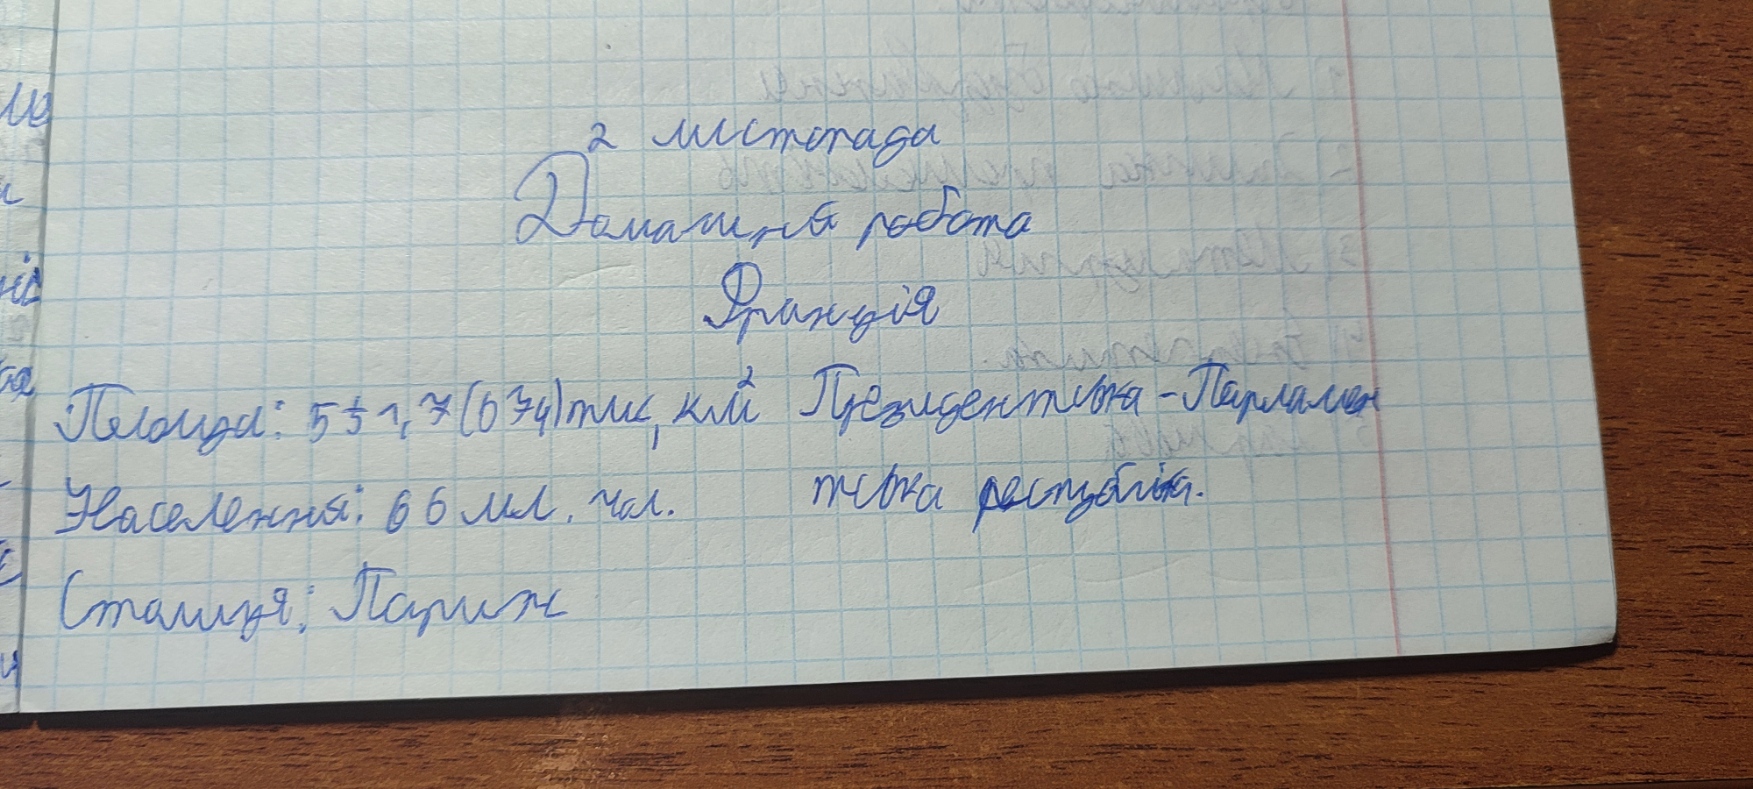 2 листопада
Домашня робота
Франція
Площа: 551,7(674)тис, км² Президентська-Парламен
тська республіка.
Населення: 66 мл. чол.
Столиця: Париж